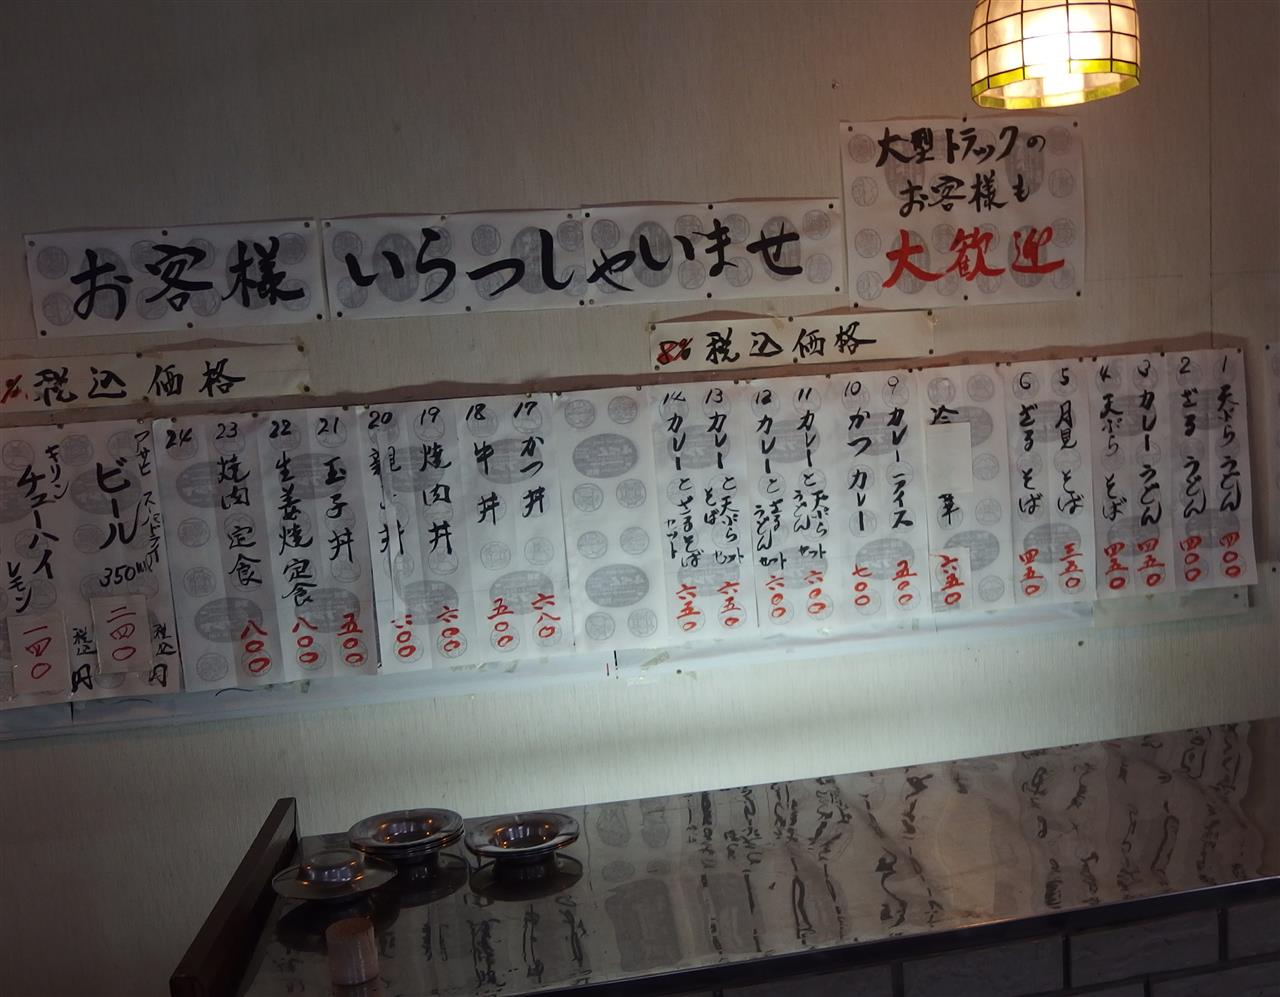 大型トラックの
お客様も
大歓迎
お客様 いらっしゃいませ
8% 税込価格
1 天ぷらうどん 四〇〇
2 ざるうどん 四〇〇
3 カレーうどん 四五〇
4 天ぷらそば 四五〇
5 月見そば 三五〇
6 ざるそば 四五〇
冷 華 六五〇
9 カレーライス 五〇〇
10 かつカレー 七〇〇
11 カレーと天ぷらうどんセット 六〇〇
12 カレーとざるうどんセット 六〇〇
13 カレーと天ぷらそばセット 六五〇
14 カレーとざるそばセット 六五〇
% 税込価格
17 かつ丼 六八〇
18 牛丼 五〇〇
19 焼肉丼 六〇〇
20 丼 六〇〇
21 玉子丼 五〇〇
22 生姜焼定食 八〇〇
23 焼肉定食 八〇〇
24
アサヒ スーパードライ
ビール 350ml 二四〇 税込 円
キリン
チューハイ レモン 一四〇 税込 円